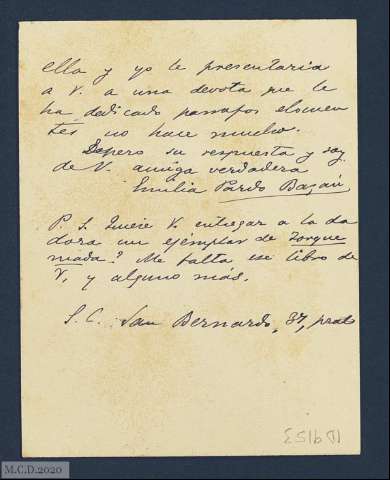 ella y yo le presentaria
a V. a una devota que le
ha dedicado parrafos elocuen
tes no hace mucho.
Espero su respuesta y soy
de V. amiga verdadera
Emilia Pardo Bazán
P. S. Quiere V. entregar a la da
dora un ejemplar de Torque
mada? Me falta ese libro de
V. y alguno más.
S. C. San Bernardo, 37, pral
D 9153
M.C.D.2020